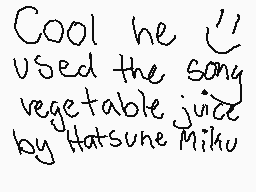 Cool he
used the song
vegetable juice
by Hatsune Miku